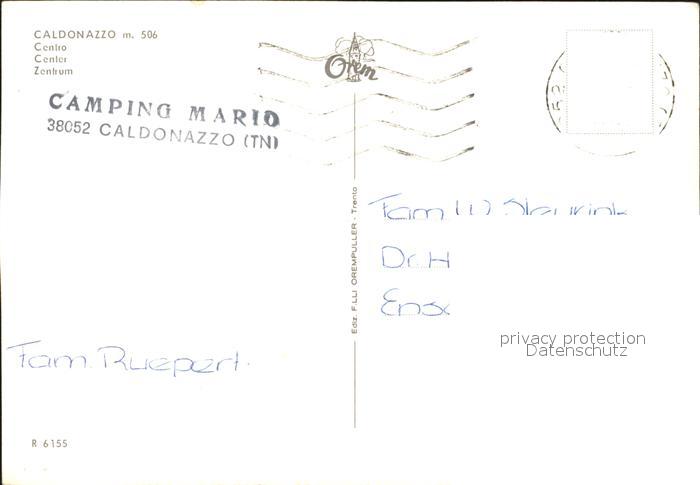 CALDONAZZO m. 506
Centro
Center
Zentrum
Orem
CAMPING MARIO
38052 CALDONAZZO (TN)
Ediz. F.LLI OREMPULLER - Trento
Fam W
Dr. H
Ens
privacy protection
Datenschutz
Fam. Ruepert.
R 6155